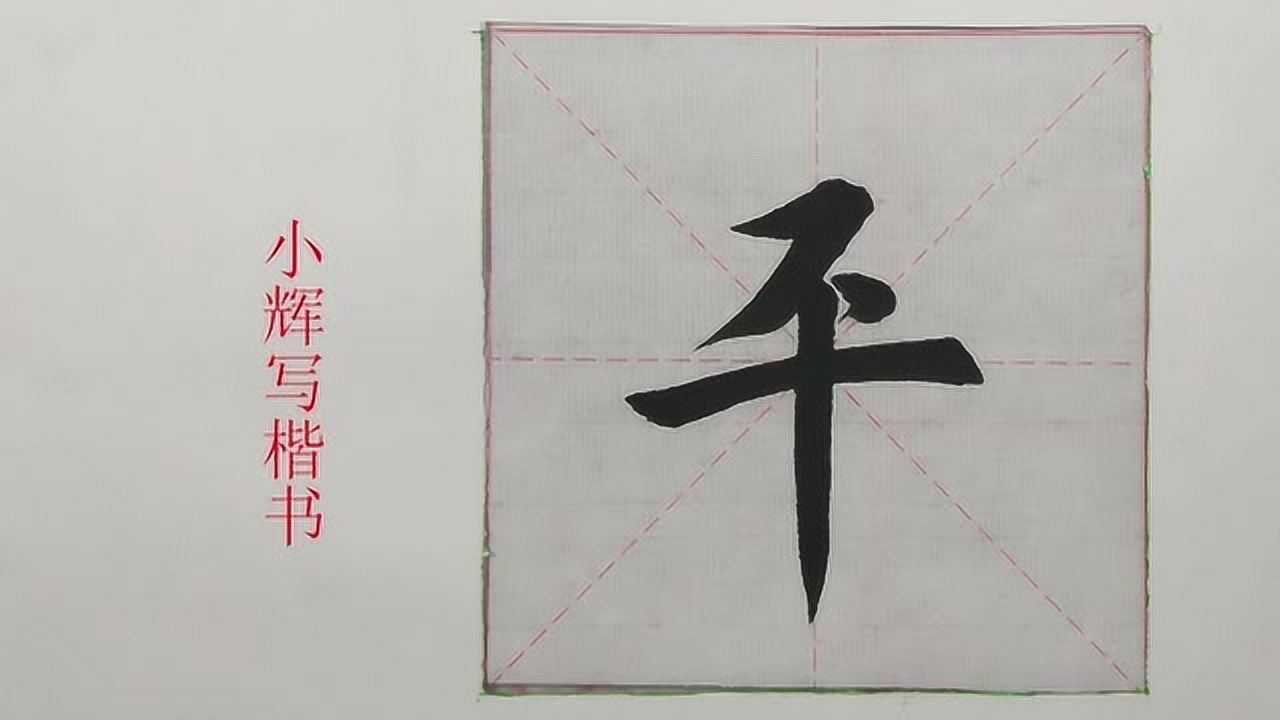 小辉写楷书
平